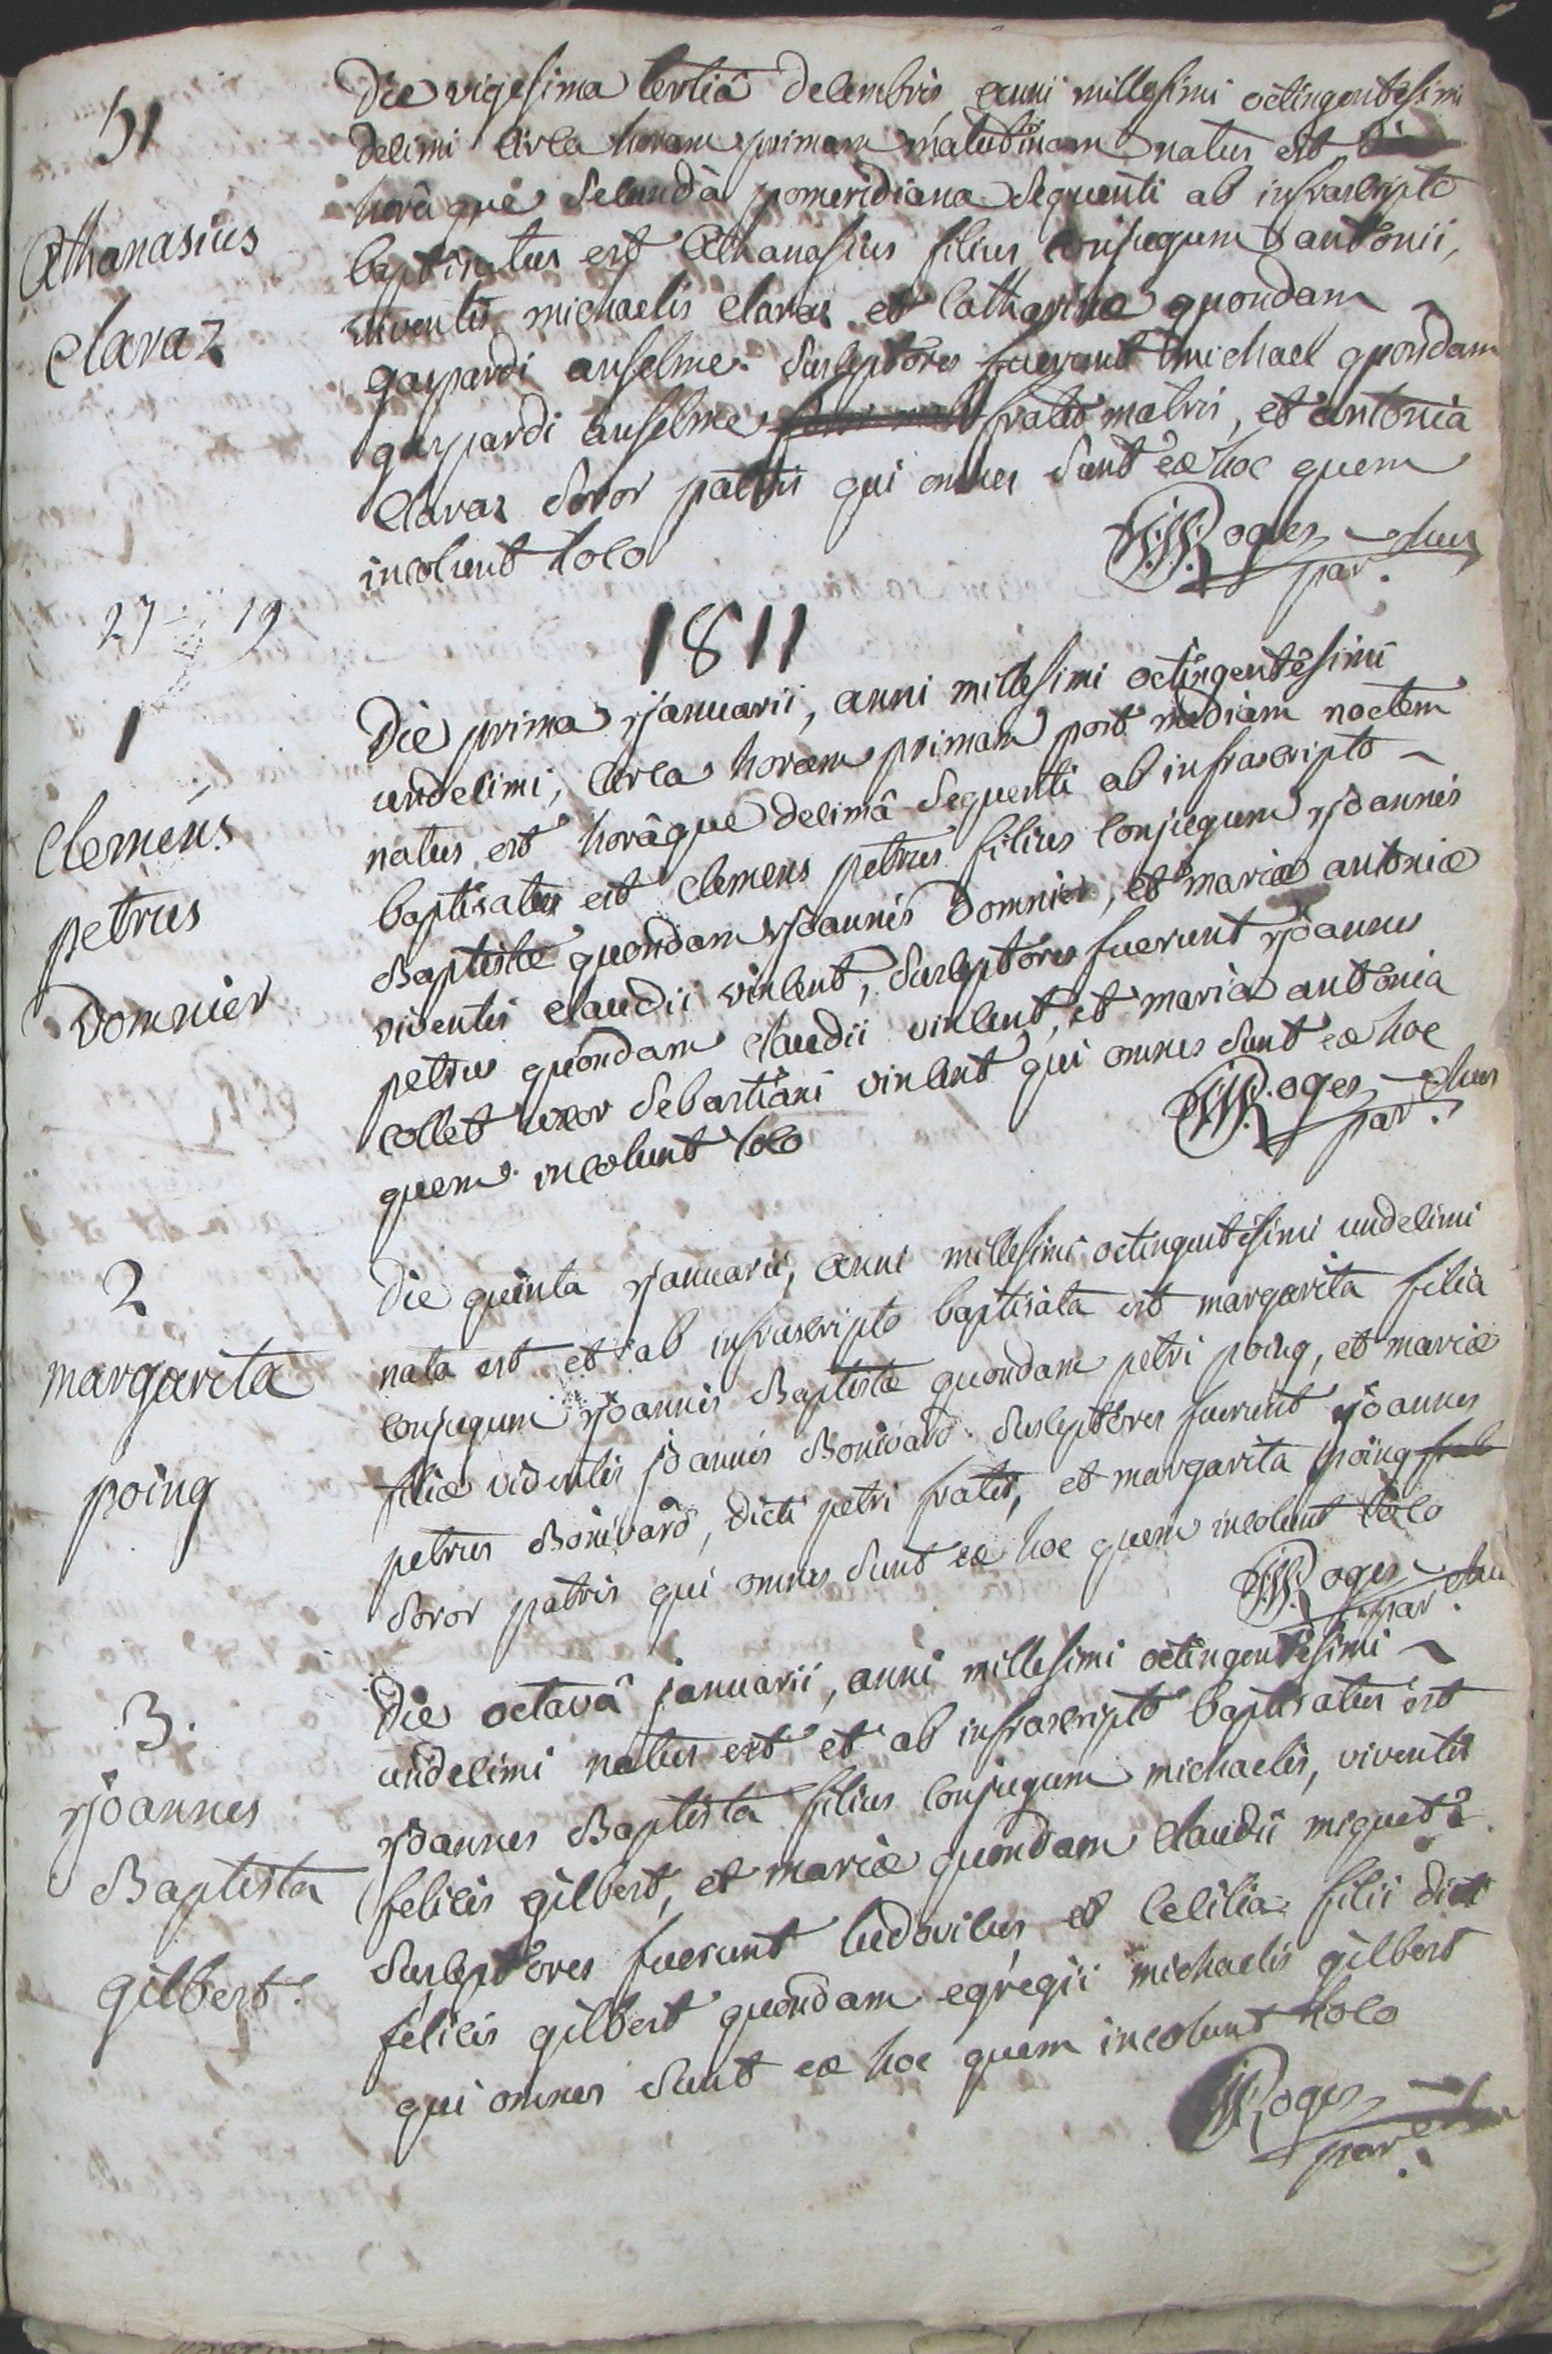 51
Athanasius
Claraz
Die vigesima tertiâ decembris anni millesimi octingentesimi
decimi circa horam primam matutinam natus est
horâque secundâ pomeridiana sequenti ab infrascripto
baptisatus est Athanasius filius conjugum antonii,
viventis michaelis Claraz et Catharinæ quondam
gaspardi anselme. Susceptores fuerunt michael quondam
gaspardi anselme frater matris, et antonia
Claraz soror patris qui omnes sunt ex hoc quem
incolunt loco
J.M. Roges
par.
27 19
1811
1
Clemens
petrus
Domnier
Die prima januarii, anni millesimi octingentesimi
undecimi, circa horam primam post mediam noctem
natus est horâque decimâ sequenti ab infrascripto
baptisatus est Clemens petrus filius conjugum joannis
Baptistæ quondam joannis Domnier, et mariæ antoniæ
viventis claudii vincent, susceptores fuerunt joannes
petrus quondam claudii vincent, et maria antonia
collet uxor Sebastiani vincent qui omnes sunt ex hoc
quem incolunt loco
J.M. Roges
par.
2
margarita
poing
Die quinta januarii, anni millesimi octingentesimi undecimi
nata est et ab infrascripto baptisata est margarita filia
conjugum joannis Baptistæ quondam petri poing, et mariæ
filiæ viventis joannis Bonivard. Susceptores fuerunt joannes
petrus Bonivard, dicti petri frater, et margarita poing
soror patris qui omnes sunt ex hoc quem incolunt loco
J.M. Roges
par.
3.
joannes
Baptista
gilbert.
Die octavâ januarii, anni millesimi octingentesimi
undecimi natus est et ab infrascripto baptisatus est
joannes Baptista filius conjugum michaelis, viventis
felicis gilbert, et mariæ quondam claudii miquet
Susceptores fuerunt ludovicus et Cecilia filii dicti
felicis gilbert quondam egregii michaelis gilbert
qui omnes sunt ex hoc quem incolunt loco
J.M. Roges
par.